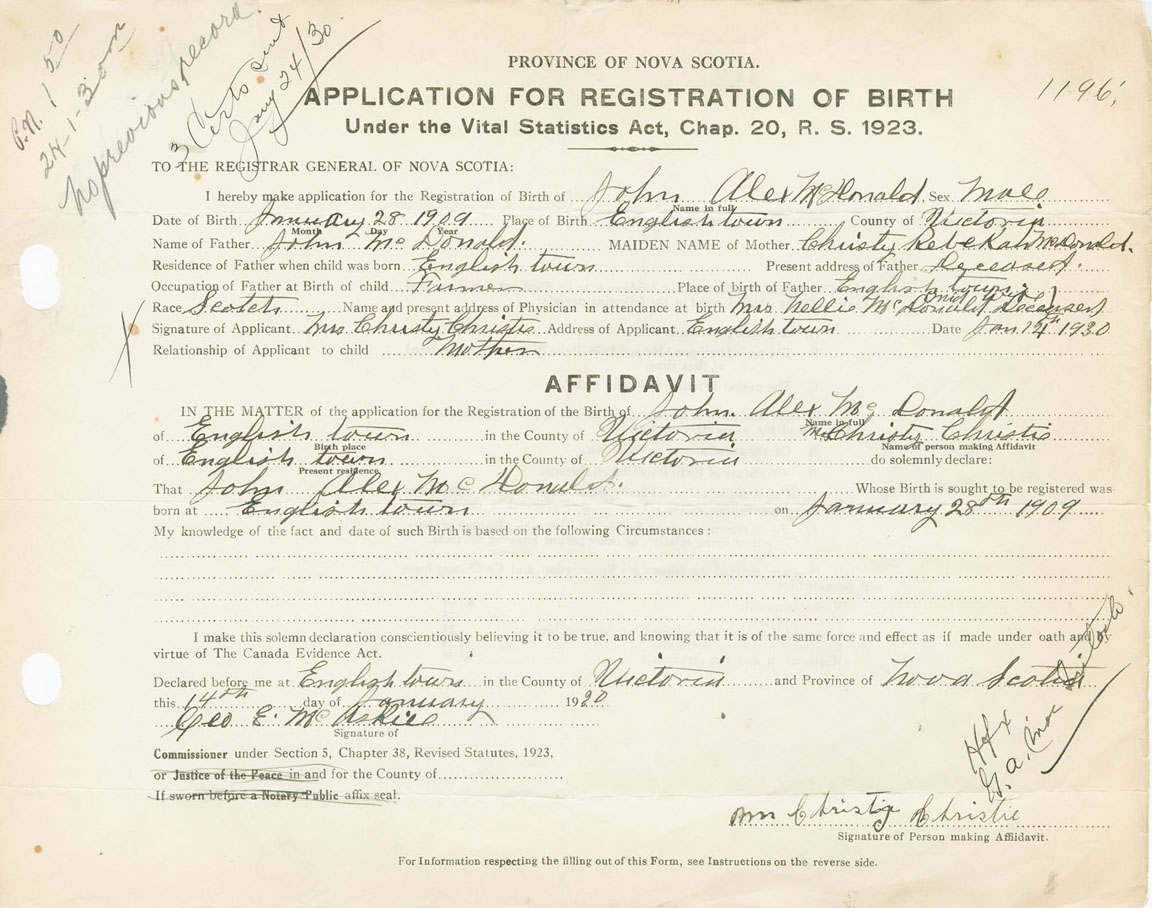 P.N. 1 50
24-1-30 m
No previous record.
3 Certs sent
Jany 24/30
PROVINCE OF NOVA SCOTIA.
APPLICATION FOR REGISTRATION OF BIRTH
1196
Under the Vital Statistics Act, Chap. 20, R. S. 1923.
TO THE REGISTRAR GENERAL OF NOVA SCOTIA:
I hereby make application for the Registration of Birth of John Alex McDonald Sex Male
Name in full
Date of Birth January 28 1909 Place of Birth Englishtown County of Victoria
Month Day Year
Name of Father John Mc Donald. MAIDEN NAME of Mother Christy Rebekah McDonald.
Residence of Father when child was born English town Present address of Father Deceased.
Occupation of Father at Birth of child Farmer Place of birth of Father English town
Race Scotch Name and present address of Physician in attendance at birth Mrs Nellie Mc Donald Deceased
Signature of Applicant Mrs Christy Christie Address of Applicant English town Date Jan 14th 1930
Relationship of Applicant to child Mother
AFFIDAVIT
IN THE MATTER of the application for the Registration of the Birth of John. Alex Mc Donald
Name in full
of English town in the County of Victoria Christy Christie
Birth place Name of person making Affidavit
of English town in the County of Victoria do solemnly declare:
Present residence
That John Alex Mc Donald. Whose Birth is sought to be registered was
born at English town on January 28th 1909
My knowledge of the fact and date of such Birth is based on the following Circumstances :
I make this solemn declaration conscientiously believing it to be true, and knowing that it is of the same force and effect as if made under oath and by
virtue of The Canada Evidence Act.
Declared before me at English town in the County of Victoria and Province of Nova Scotia
this 14th day of January 1930
Geo E. McAskill
Signature of
Commissioner under Section 5, Chapter 38, Revised Statutes, 1923,
or Justice of the Peace in and for the County of
If sworn before a Notary Public affix seal.
Hfx
Christie Christie
Signature of Person making Affidavit.
For Information respecting the filling out of this Form, see Instructions on the reverse side.